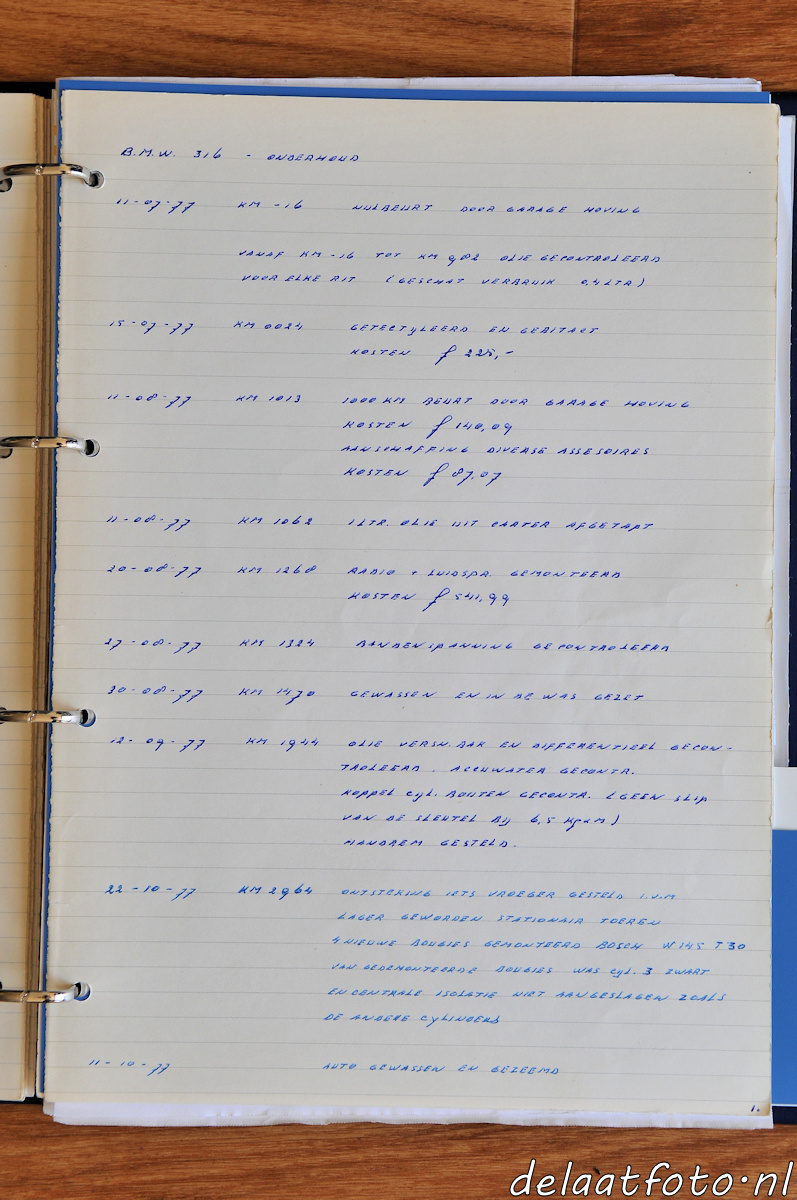 B.M.W. 316 - ONDERHOUD
11-07-77 KM -16 NULBEURT DOOR GARAGE HOVING
VANAF KM -16 TOT KM 982 OLIE GECONTROLEERD
VOOR ELKE RIT (GESCHAT VERBRUIK 0,4 LTR)
15-07-77 KM 0024 GETECTYLEERD EN GEBITACT
KOSTEN ƒ 225,-
11-08-77 KM 1013 1000 KM BEURT DOOR GARAGE HOVING
KOSTEN ƒ 140,09
AANSCHAFFING DIVERSE ASSESOIRES
KOSTEN ƒ 87,07
11-08-77 KM 1062 1 LTR. OLIE UIT CARTER AFGETAPT
20-08-77 KM 1268 RADIO + LUIDSPR. GEMONTEERD
KOSTEN ƒ 541,99
27-08-77 KM 1324 BANDENSPANNING GECONTROLEERD
30-08-77 KM 1470 GEWASSEN EN IN DE WAS GEZET
12-09-77 KM 1944 OLIE VERSN. BAK EN DIFFERENTIEEL GECON-
TROLEERD. ACCUWATER GECONTR.
KOPPEL CYL. BOUTEN GECONTR. (GEEN SLIP
VAN DE SLEUTEL BIJ 6,5 KGXM)
HANDREM GESTELD.
22-10-77 KM 2964 ONTSTEKING IETS VROEGER GESTELD I.V.M
LAGER GEWORDEN STATIONAIR TOEREN
4 NIEUWE BOUGIES GEMONTEERD BOSCH W 145 T 30
VAN GEDEMONTEERDE BOUGIES WAS CYL. 3 ZWART
EN CENTRALE ISOLATIE NIET AANGESLAGEN ZOALS
DE ANDERE CYLINDERS
11-10-77 AUTO GEWASSEN EN GEZEEMD
1.
delaatfoto.nl